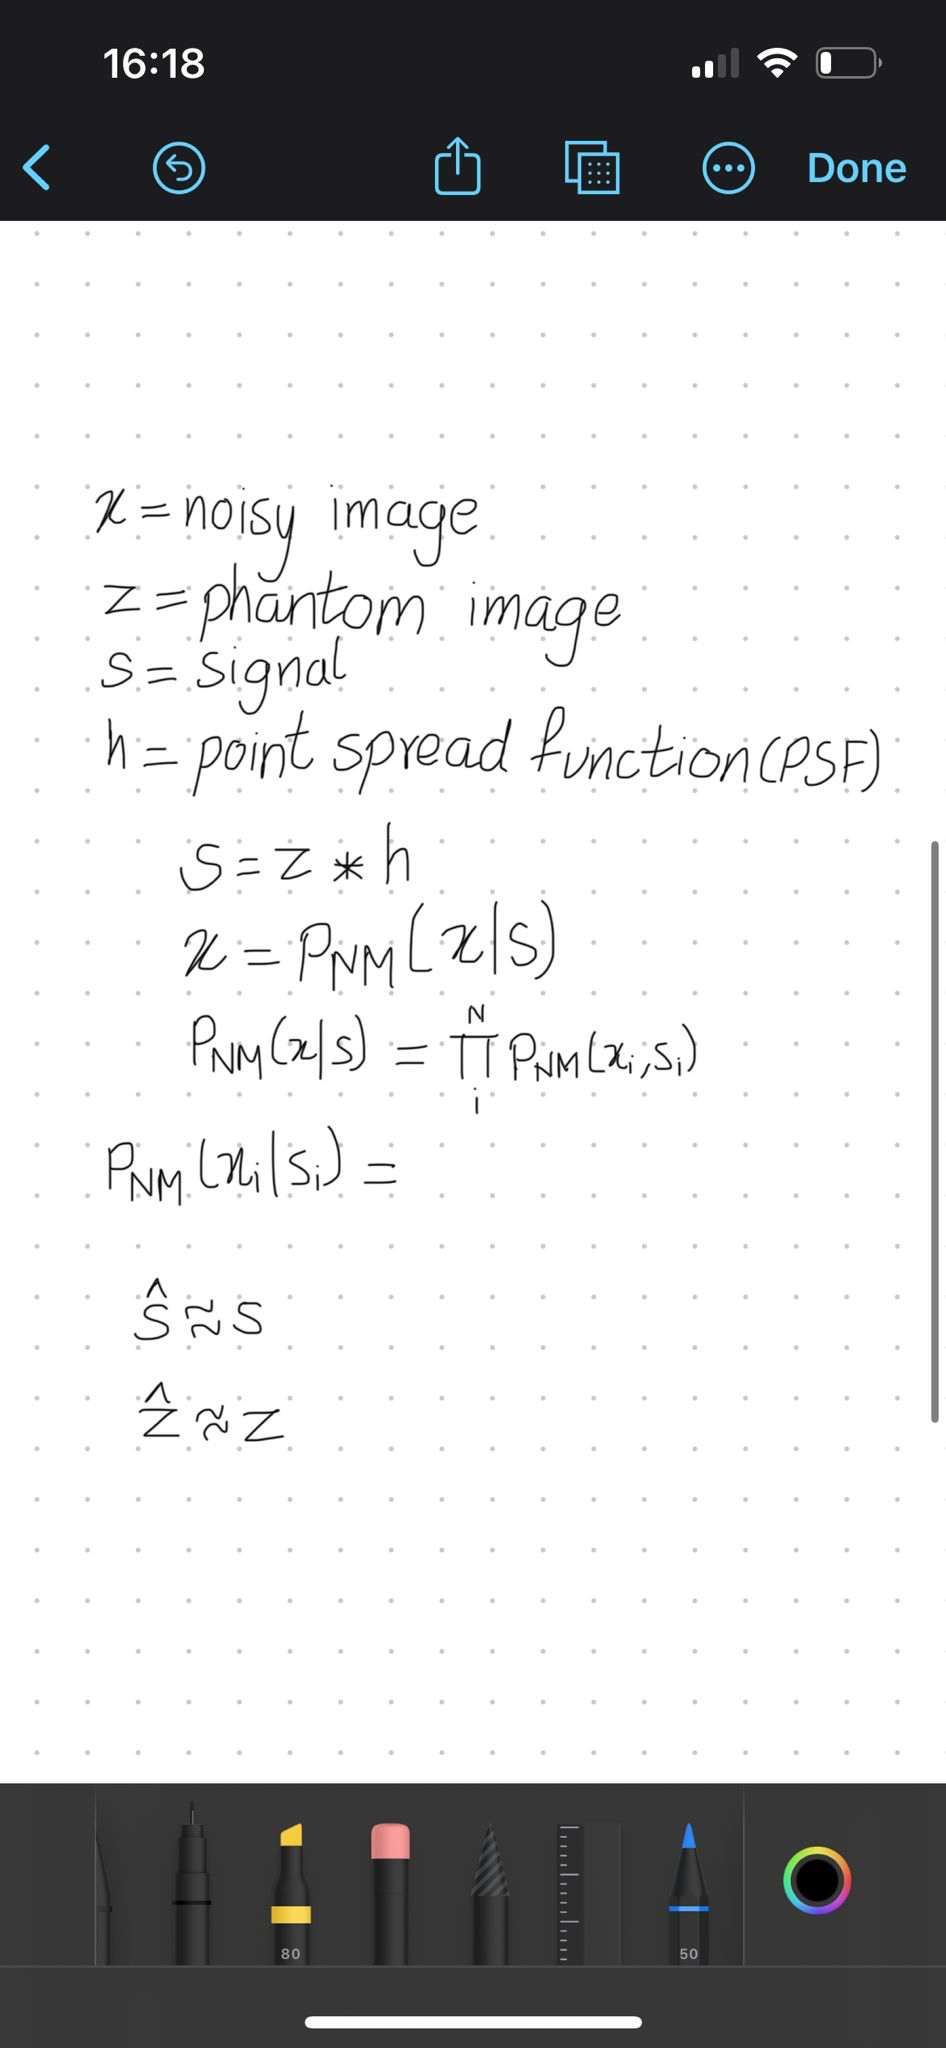 16:18
Done
x = noisy image
z = phantom image
s = signal
h = point spread function (PSF)
s = z * h
x = P_NM(x|s)
P_NM(x|s) = ∏_i^N P_NM(x_i, s_i)
P_NM(x_i|s_i) =
ŝ ≈ s
ẑ ≈ z
80
50